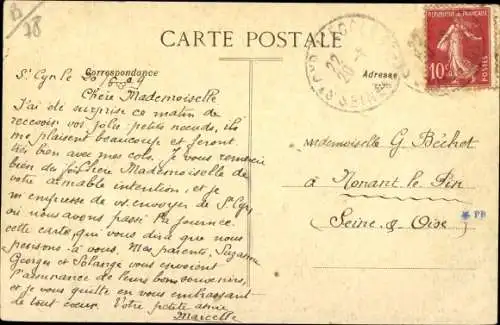 B
78
CARTE POSTALE
Correspondance
Adresse
REPUBLIQUE FRANÇAISE
10c
POSTES
St Cyr le 20
Chère Mademoiselle
J'ai été surprise ce matin de
recevoir vos jolis petits nœuds, ils
me plaisent beaucoup et feront
très bien avec mes cols. Je vous remercie
bien chère Mademoiselle de
votre aimable intention, et je
m'empresse de vs envoyer de St Cyr
où nous avons passé la journée
cette carte, qui vous dira que nous
pensons à vous. Mes parents, Suzanne
Georges et Solange vous envoient
l'assurance de leurs bons souvenirs,
et je vous quitte en vous embrassant
de tout cœur. Votre petite amie
Marcelle
Mademoiselle G Béchot
à Nonant le Pin
(Seine & Oise)
* PP